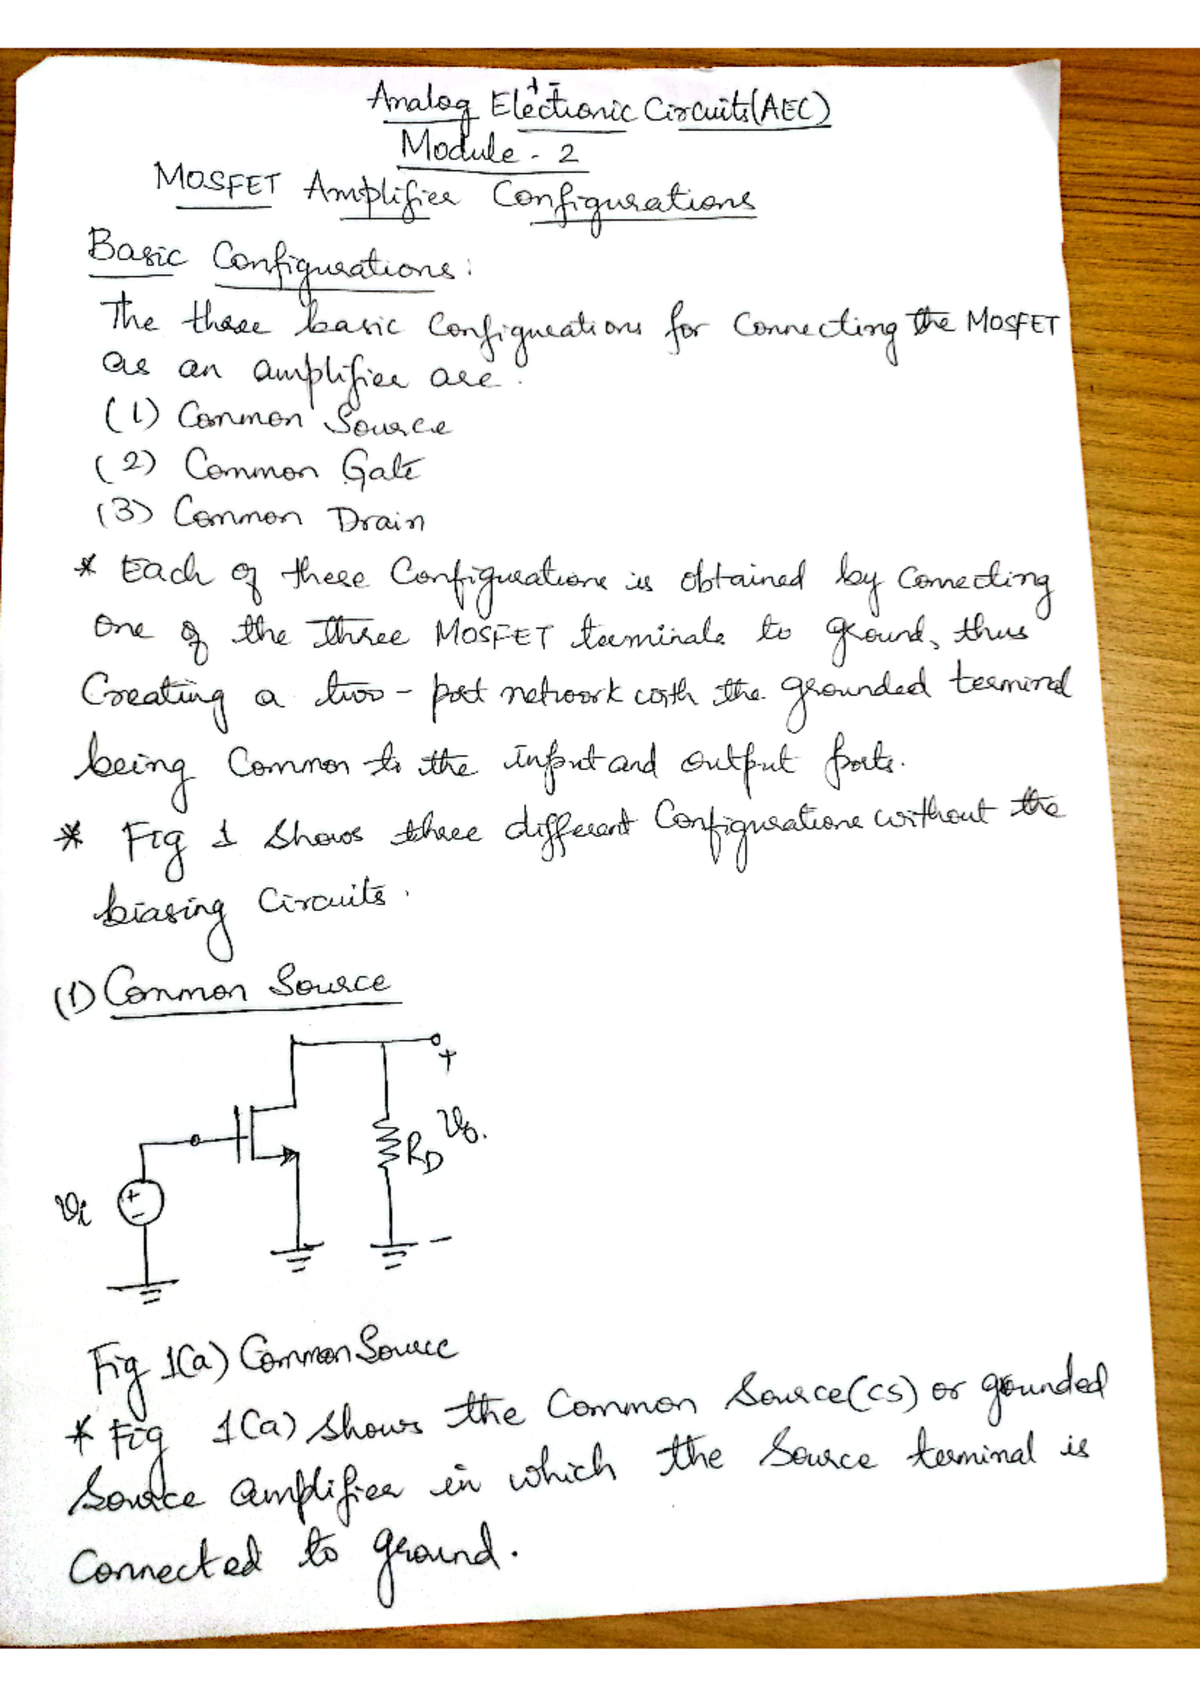 Analog Electronic Circuits (AEC)
Module - 2
MOSFET Amplifier Configurations
Basic Configurations:
The three basic Configurations for Connecting the MOSFET
as an amplifier are.
(1) Common Source
(2) Common Gate
(3) Common Drain
* Each of these Configurations is obtained by connecting
One of the three MOSFET terminals to ground, thus
Creating a two-port network with the grounded terminal
being Common to the input and output ports.
* Fig 1 Shows three different Configurations without the
biasing Circuits.
(1) Common Source
+
Vo.
RD
Vi
+
-
-
Fig 1(a) Common Source
* Fig 1(a) shows the Common Source (CS) or grounded
Source amplifier in which the Source terminal is
Connected to ground.